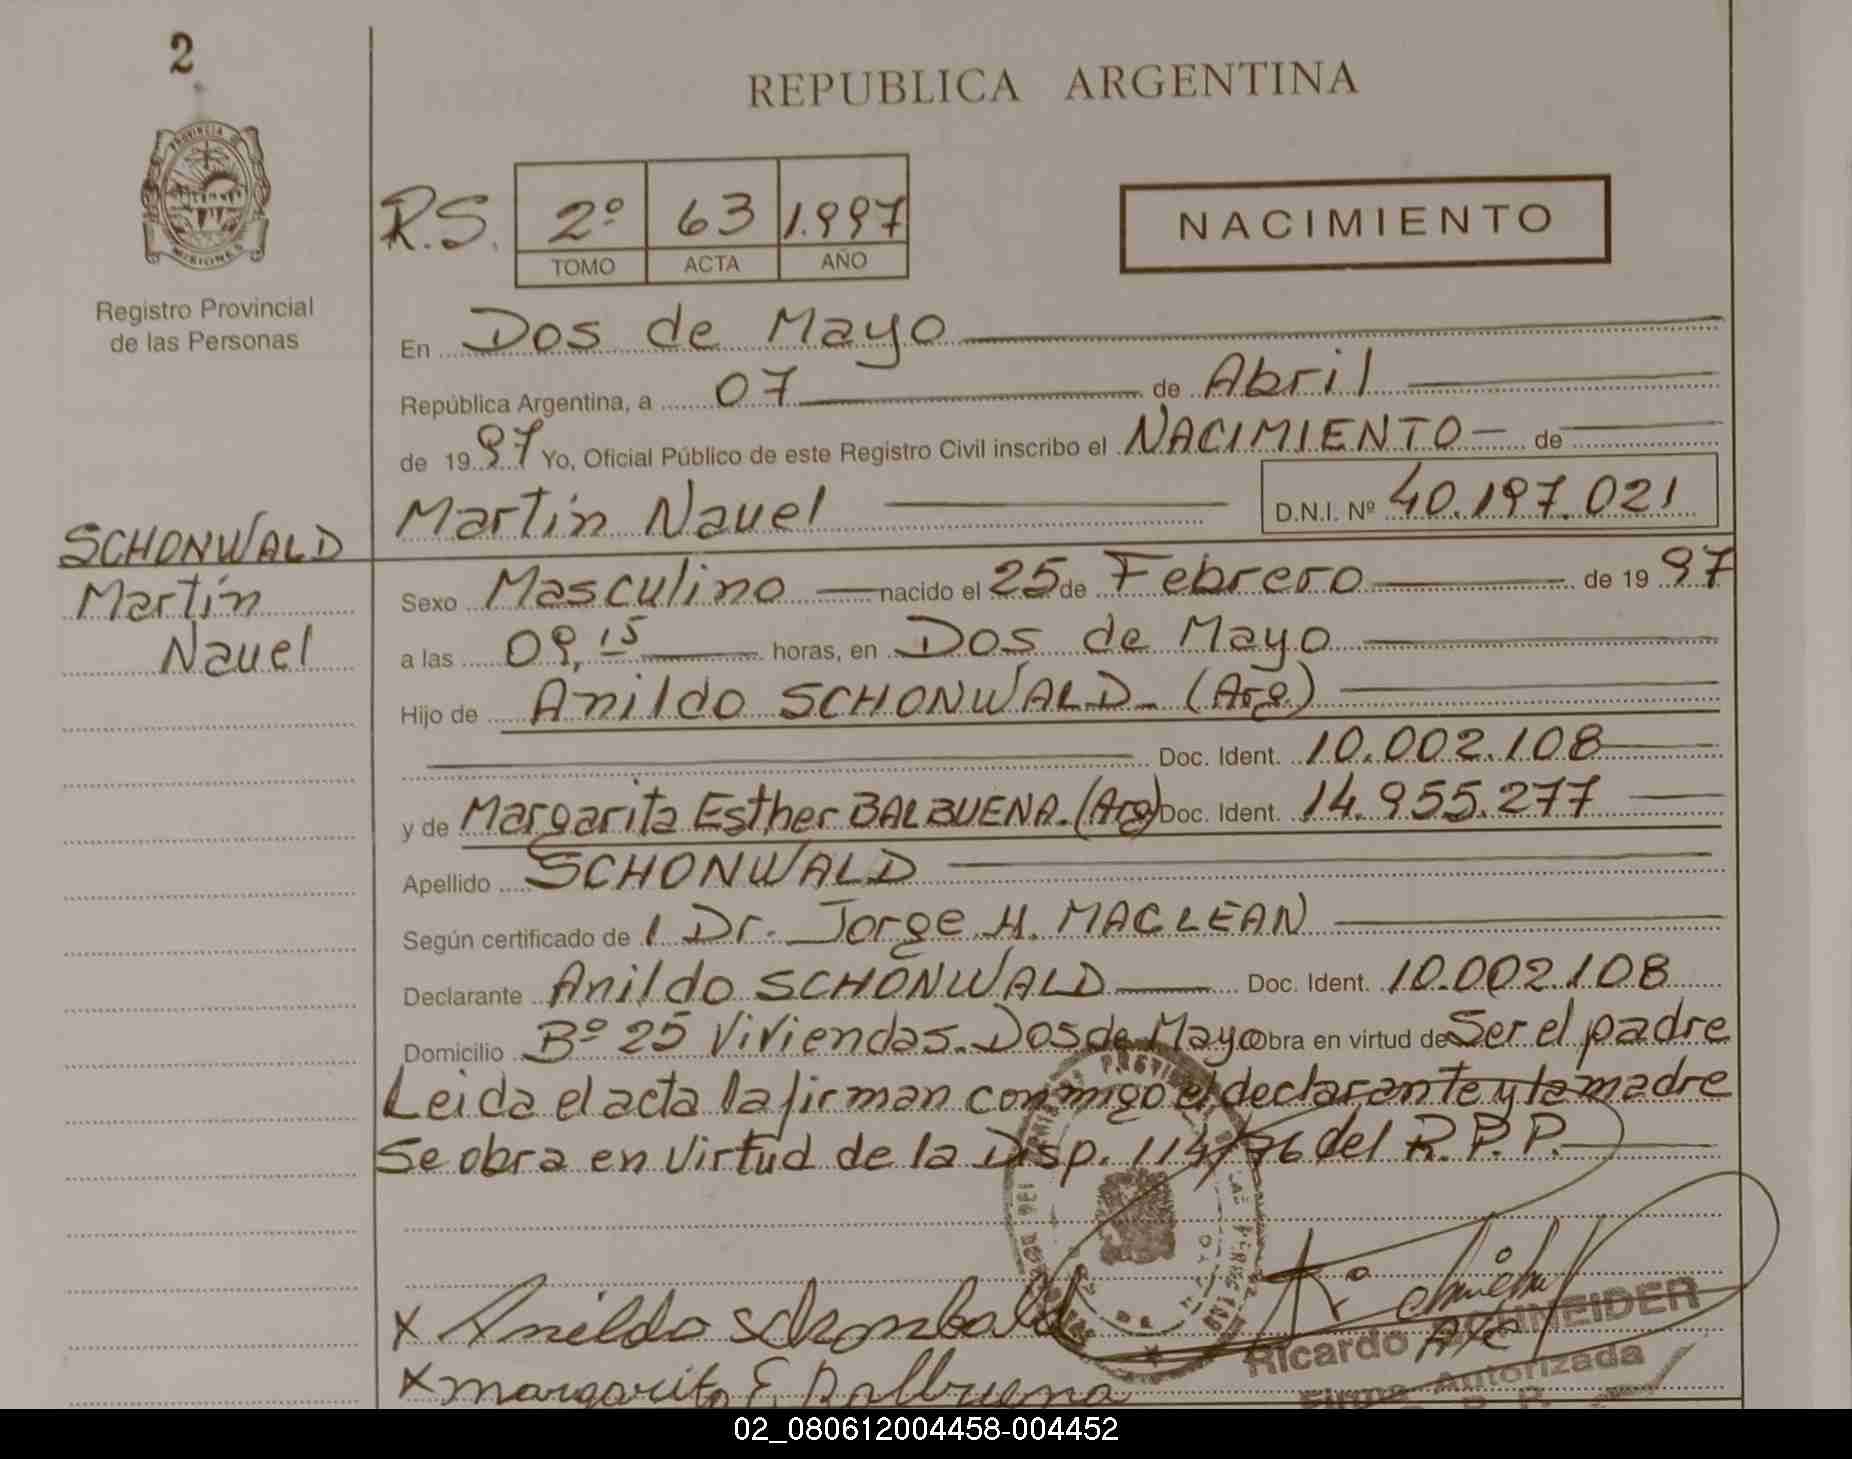 2
REPUBLICA ARGENTINA
PROVINCIA DE
MISIONES
Registro Provincial
de las Personas
R.S. 2º 63 1.997
TOMO ACTA AÑO
NACIMIENTO
En Dos de Mayo
República Argentina, a 07 de Abril
de 1997 Yo, Oficial Público de este Registro Civil inscribo el NACIMIENTO - de
Martín Nauel D.N.I. Nº 40.197.021
SCHONWALD
Martín
Nauel
Sexo Masculino nacido el 25 de Febrero de 1997
a las 09,15 horas, en Dos de Mayo
Hijo de Anildo SCHONWALD - (Arg.)
Doc. Ident. 10.002.108
y de Margarita Esther BALBUENA. (Arg) Doc. Ident. 14.955.277
Apellido SCHONWALD
Según certificado de l Dr. Jorge H. MACLEAN
Declarante Anildo SCHONWALD Doc. Ident. 10.002.108
Domicilio Bº 25 Viviendas. Dos de Mayo obra en virtud de Ser el padre
Leida el acta la firman conmigo el declarante y la madre
Se obra en virtud de la Disp. 114/76 del R.P.P.
x Anildo schonbald
x margarita E. Balbuena
Ricardo SCHNEIDER
Firma Autorizada
02_080612004458-004452